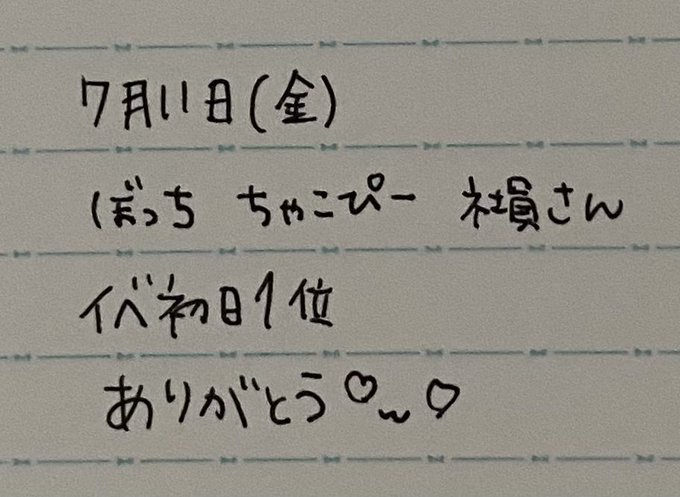 7月11日(金)
ぼっち ちゃこぴー 社員さん
イベ初日1位
ありがとう♡〰♡